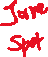 June
Spot